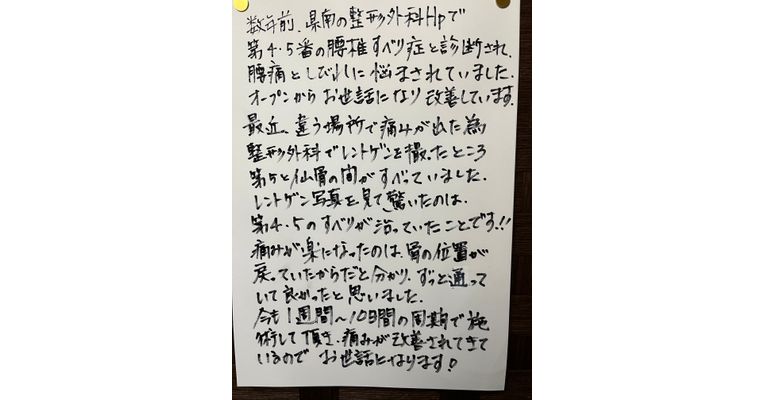 数年前、県南の整形外科Hpで
第4.5番の腰椎すべり症と診断され、
腰痛としびれに悩まされていました。
オープンからお世話になり改善しています。
最近、違う場所で痛みが出た為
整形外科でレントゲンを撮ったところ
第5と仙骨の間がすべっていました。
レントゲン写真を見て驚いたのは、
第4.5のすべりが治っていたことです!!
痛みが楽になったのは、骨の位置が
戻っていたからだと分かり、ずっと通って
いて良かったと思いました。
今も1週間〜10日間の周期で施
術して頂き、痛みが改善されてきて
いるので お世話になります!